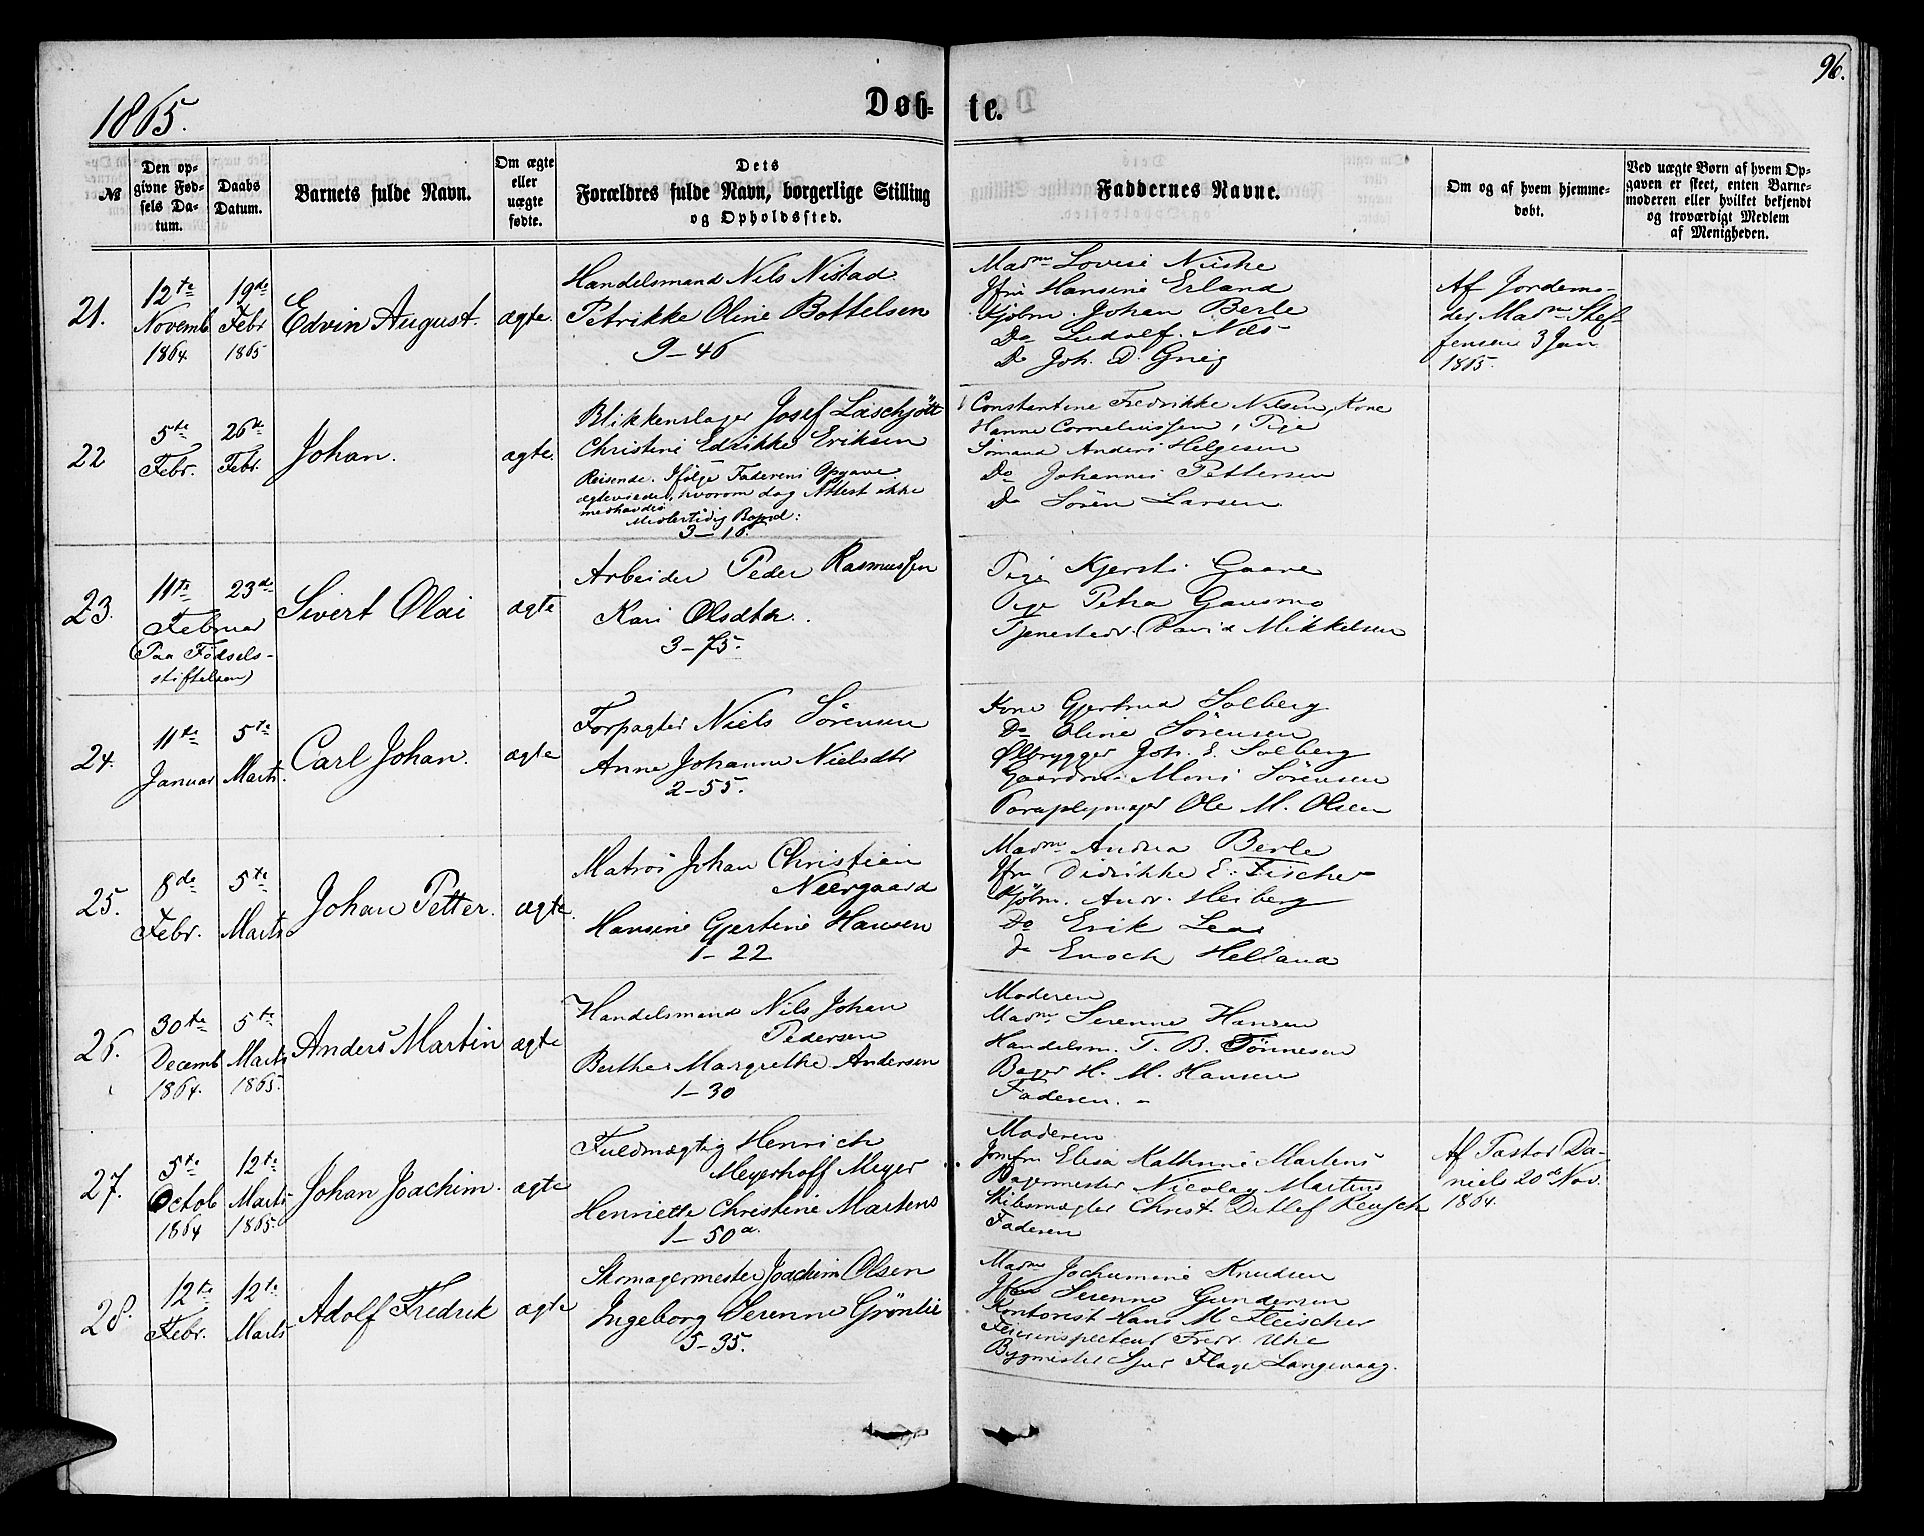 96.
1865.
Døb- te.
№
Den op-
givne Fød-
sels Da-
tum.
Daabs
Datum.
Barnets fulde Navn.
Om ægte
eller
uægte
fødte.
Dets
Forældres fulde Navn, borgerlige Stilling
og Opholdssted.
Faddernes Navne.
Om og af hvem hjemme-
døbt.
Ved uægte Børn af hvem Op-
gaven er skeet, enten Barne-
moderen eller hvilket bekjendt
og troværdigt Medlem
af Menigheden.
21.
12te
Novemb
1864.
19de
Febr
1865
Edvin August.
ægte.
Handelsmand Nils Nistad
Petrikke Oline Bottelsen
9-46
Madm Lovise
Jfru Hansine Erland
Kjøbm. Johan Berle
Do Ludolf. Næs
Do Joh. D. Grieg
Af Jordemo-
der Madm Stef-
fensen 3 Jan
1865.
22
5te
Febr.
26de
Febr.
Johan.
ægte.
Blikkenslager Josef
Christine Edrikke Eriksen
Reisende. Ifølge Faderens Opgave
ægteviede, hvorom dog Attest ikke
Midlertidig Bopæl:
3-16.
Constantine Fredrikke Nilsen, Kone
Hanne Corneliussen, Pige
Sømand Anders Helgesen
Do Johannes Pettersen
Do Søren Larsen
23.
11te
23de
Februar
(Paa Fødsels-
stiftelsen)
Sivert Olai
ægte
Arbeider Peder Rasmussen
Kari Olsdtr.
3-75.
Pige Kjersti Gaare
Pige Petra Gausmo
Tjenestedr. David Mikkelsen
24.
11te
Januar
5te
Marts.
Carl Johan.
ægte
Forpagter Niels Sørensen
Anne Johanne Nielsdtr
2-55.
Kone Gjertrud Solberg
Do Oline Sørensen
Ølbrygger Joh. E. Solberg
Gaardm. Mons Sørensen
Paraplymager Ole M. Olsen
25.
8de
Febr.
5te
Marts
Johan Petter.
ægte.
Matros Johan Christian
Neergaard
Hansine Gjertine Hansen
1-22
Madm Andrea Berle
Jfru Didrikke E. Fischer
Kjøbm. Andr. Heiberg
Do Erik Lea
do Enoch Helland
26.
30te
Decemb
1864.
5te
Marts
1865.
Anders Martin
ægte
Handelsmand Nils Johan
Pedersen
Berthe Margrethe Andersen
1-30
Moderen
Madm. Serenne Hansen
Handelsm. T. B. Tönnesen
Bager H. M. Hansen
Faderen. -
27.
5te
Octob
1864
12te
Marts
1865.
Johan Joachim.
ægte
Fuldmægtig Henrich
Meyerhoff Meyer
Henriette Christine Martens
1-50a.
Moderen
Jomfru Elisa Kathrine Martens
Bagermester Nicolay Martens
Skibsmægler Christ. Ditlef Reusch
Faderen
Af Pastor Da-
niels 20de Nov.
1864.
28.
12te
Febr.
12te
Marts
Adolf Fredrik
ægte
Skomagermester Joachim Olsen
Ingeborg Serenne Grøntie
5-35.
Madm Jochumine Knudsen
Jfru Serenne Gundersen
Kontorist Hans M Fleischer
Feierinspecteur Fredr. Uhe
Bygmester Sjur Flage Langevaag.